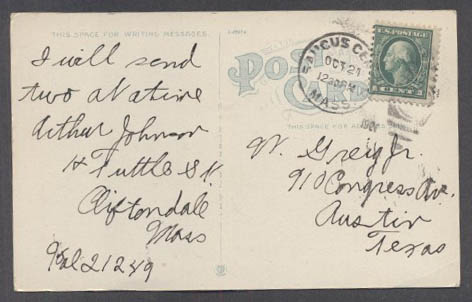 THIS SPACE FOR WRITING MESSAGES.
I will send
two at a time
Arthur Johnson
Tuttle St
Cliftondale
Mass
POST CARD
THIS SPACE FOR
OCT 21
MASS.
U.S. POSTAGE
W. Greig Jr.
910 Congress Ave.
Austin
Texas